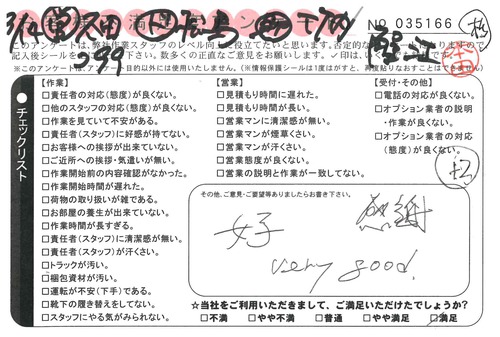 No 035166
このアンケートは、弊社作業スタッフのレベル向上に役立てたいと思います。否定的な
記入後シールを
下さい。数多くの正直なご意見をお願いします。✓印は、
※このアンケートは、アンケート目的以外には使用いたしません。(※情報保護シールは1度はがすと、再度貼りなおすことはできません)
チェックリスト
【作業】
□責任者の対応(態度)が良くない。
□他のスタッフの対応(態度)が良くない。
□作業を見ていて不安がある。
□責任者(スタッフ)に好感が持てない。
□お客様への挨拶が出来ていない。
□ご近所への挨拶・気遣いが無い。
□作業開始前の内容確認がなかった。
□作業開始時間が遅れた。
□荷物の取り扱いが雑である。
□お部屋の養生が出来ていない。
□作業時間が長すぎる。
□責任者(スタッフ)に清潔感が無い。
□責任者(スタッフ)が汗くさい。
□トラックが汚い。
□梱包資材が汚い。
□運転が不安(下手)である。
□靴下の履き替えをしてない。
□スタッフにやる気がみられない。
【営業】
□見積もり時間に遅れた。
□見積もり時間が長い。
□営業マンに清潔感が無い。
□営業マンが煙草くさい。
□営業マンが汗くさい。
□営業態度が良くない。
□営業の説明と作業が一致してない。
【受付・その他】
□電話の対応が良くない。
□オプション業者の説明
・作業が良くない。
□オプション業者の対応
(態度)が良くない。
その他、ご意見・ご要望等ありましたらお書き下さい。
好 感謝
very good.
☆当社をご利用いただきまして、ご満足いただけたでしょうか?
□不満 □やや不満 □普通 □やや満足 ☑満足